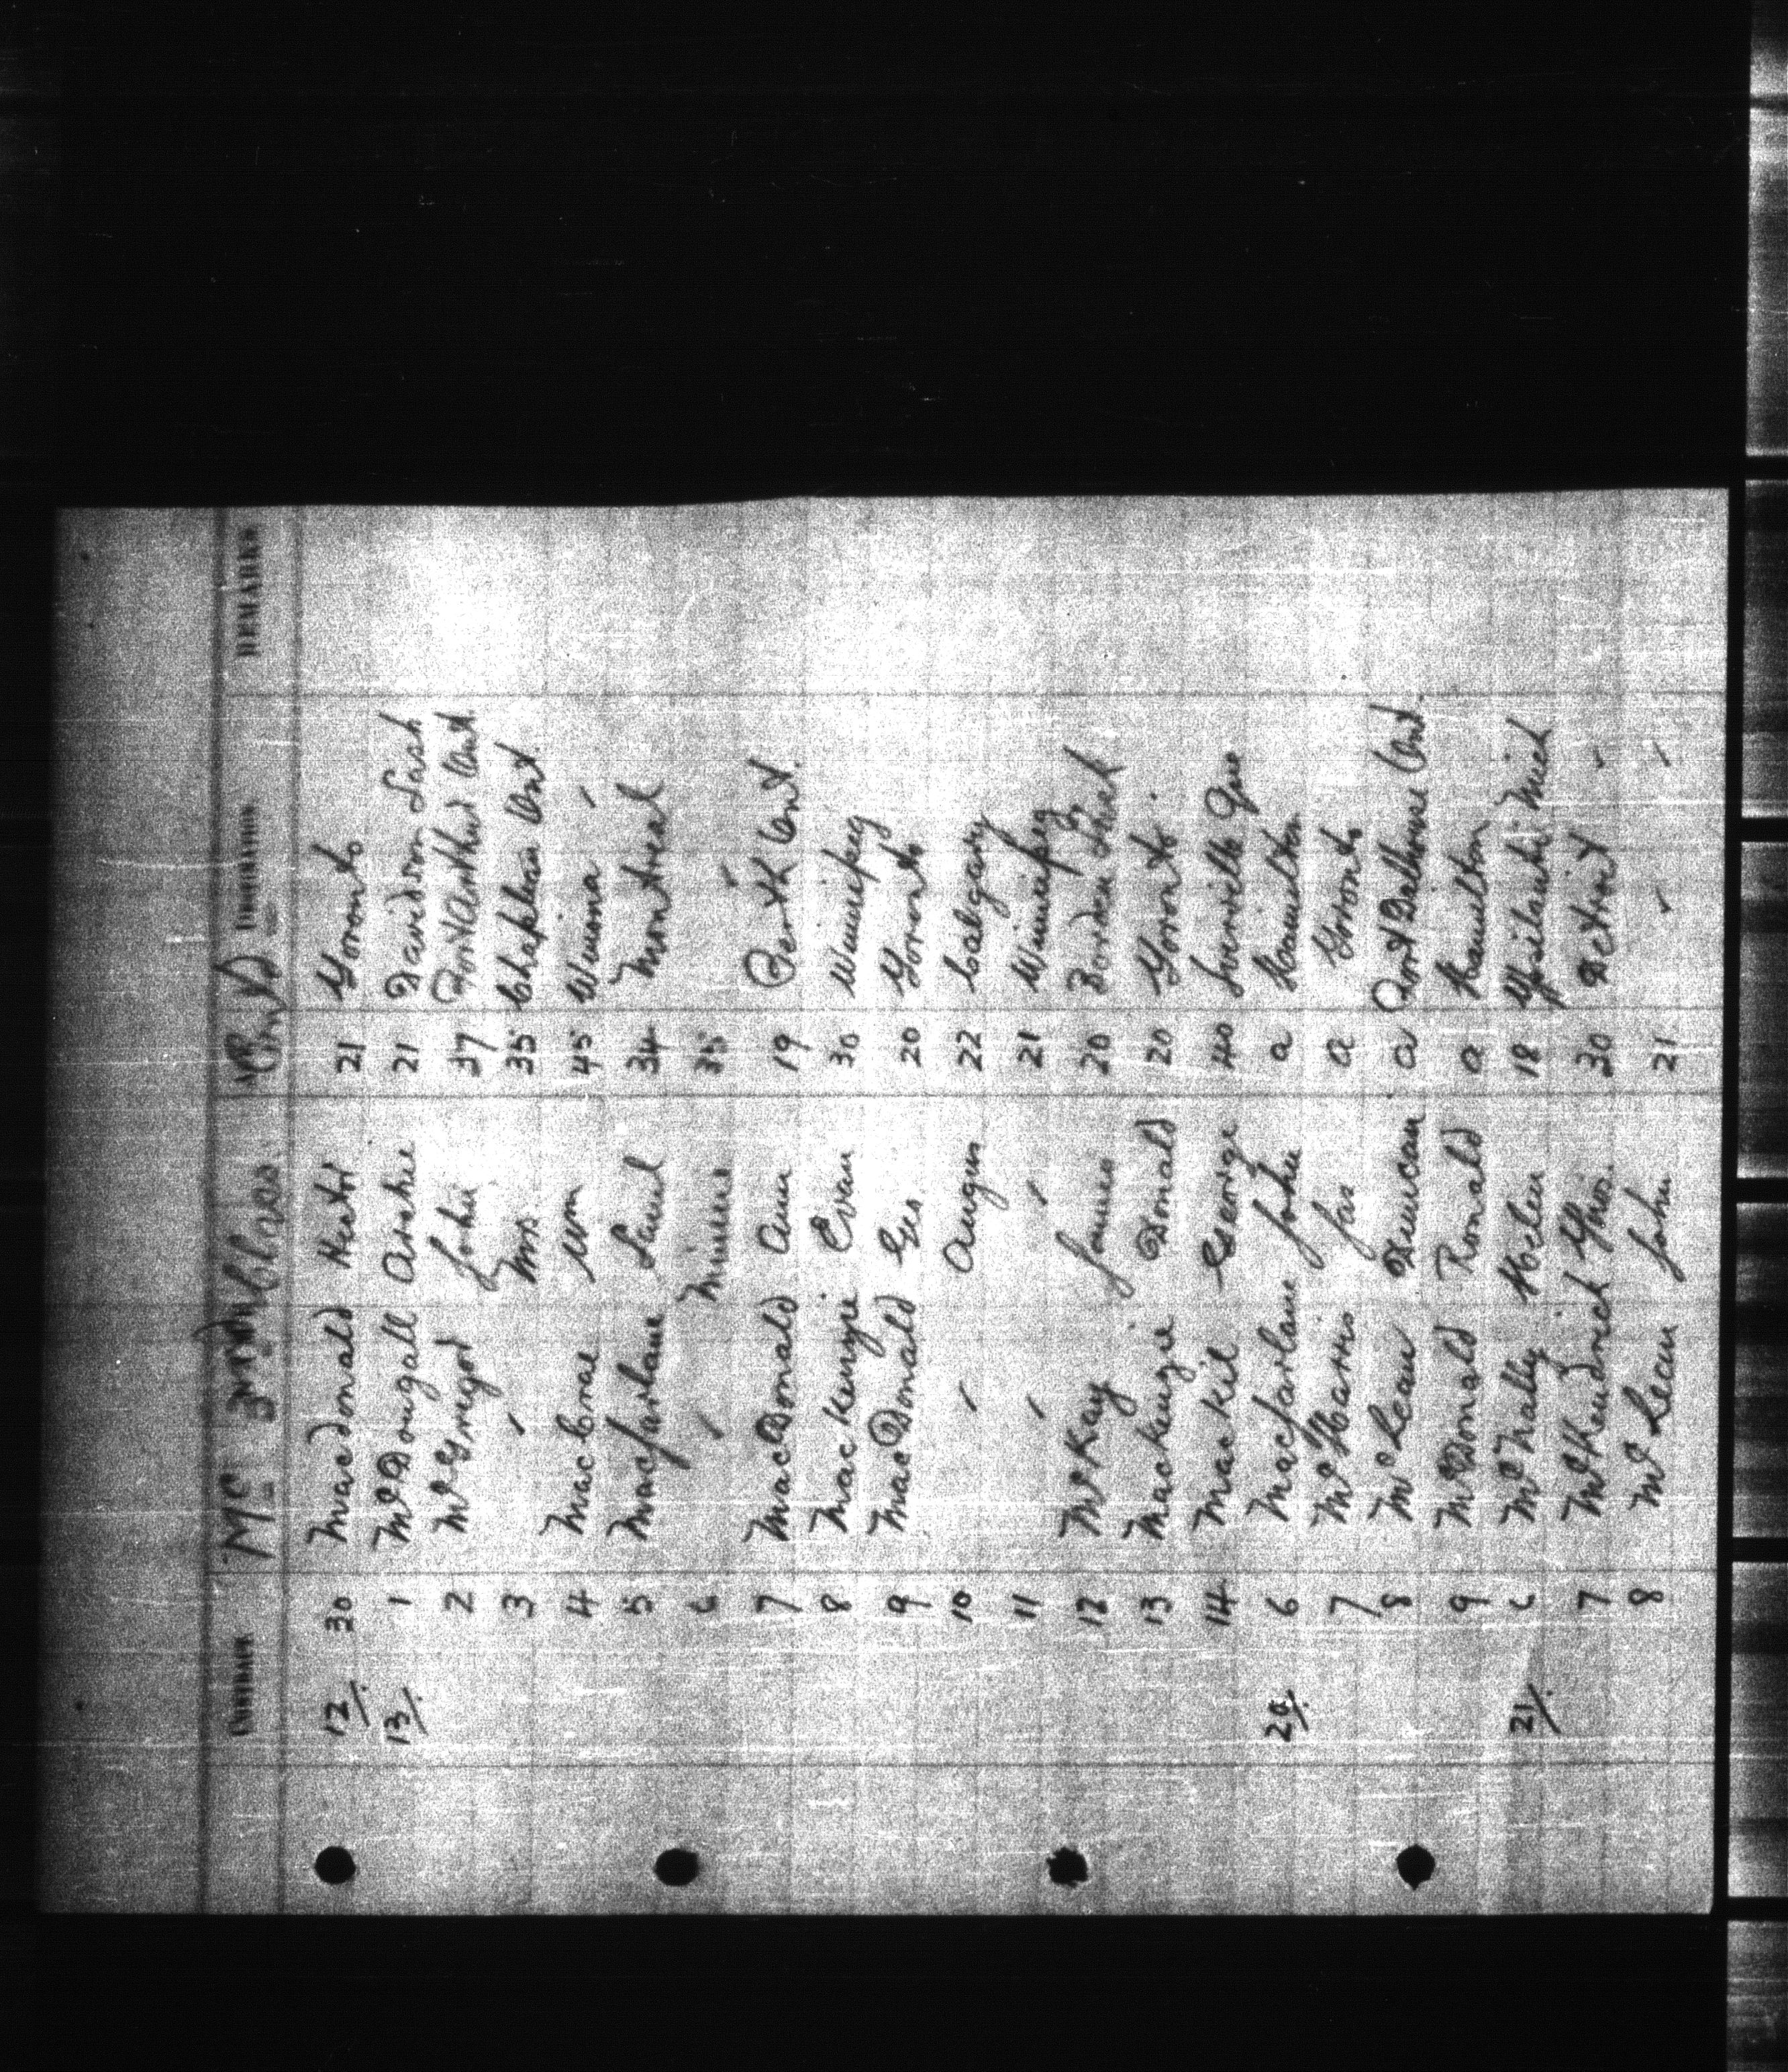 Mc 3rd Class. DURATION REMARKS
12/. 30 Macdonald Hector 21 Toronto
13/. 1 McDougall Archie 21 Davidson Sask
2 McGregor John 37 Port Arthur Ont.
3 " Mrs. 35 Chapleau Ont.
4 MacCrae Wm 45 Winona "
5 Macfarlane Saml 34 Montreal
6 " Minnie 35 "
7 MacDonald Ann 19 Perth Ont.
8 MacKenzie Evan 30 Winnipeg
9 MacDonald Geo. 20 Toronto
10 " Angus 22 Calgary
11 " " 21 Winnipeg
12 McKay James 20 Borden Sask
13 Mackenzie Donald 20 Toronto.
14 Mackil George 40 Que
20/. 6 Macfarlane John a Hamilton
7 McHarris Jas a Toronto
8 McLean Duncan a Port Dalhousie Ont.
9 McDonald Ronald a Hamilton
21/. 6 McNally Helen 18 Ypsilanti Mich
7 McKendrick Thos. 30 Detroit "
8 McLean John 21 " "